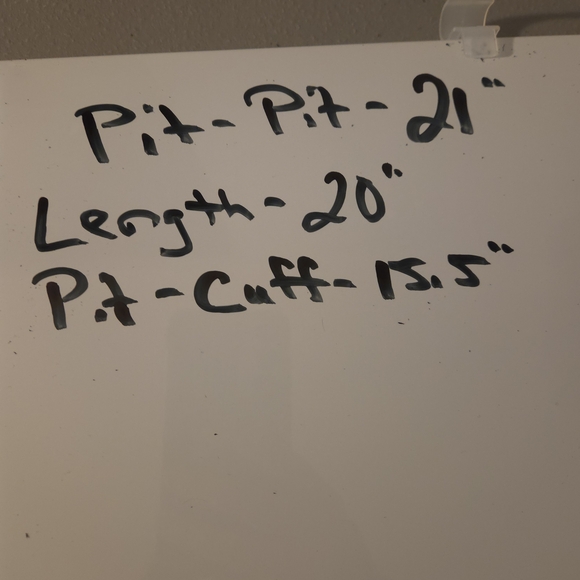 Pit - Pit - 21"
Length - 20"
Pit - Cuff - 15.5"